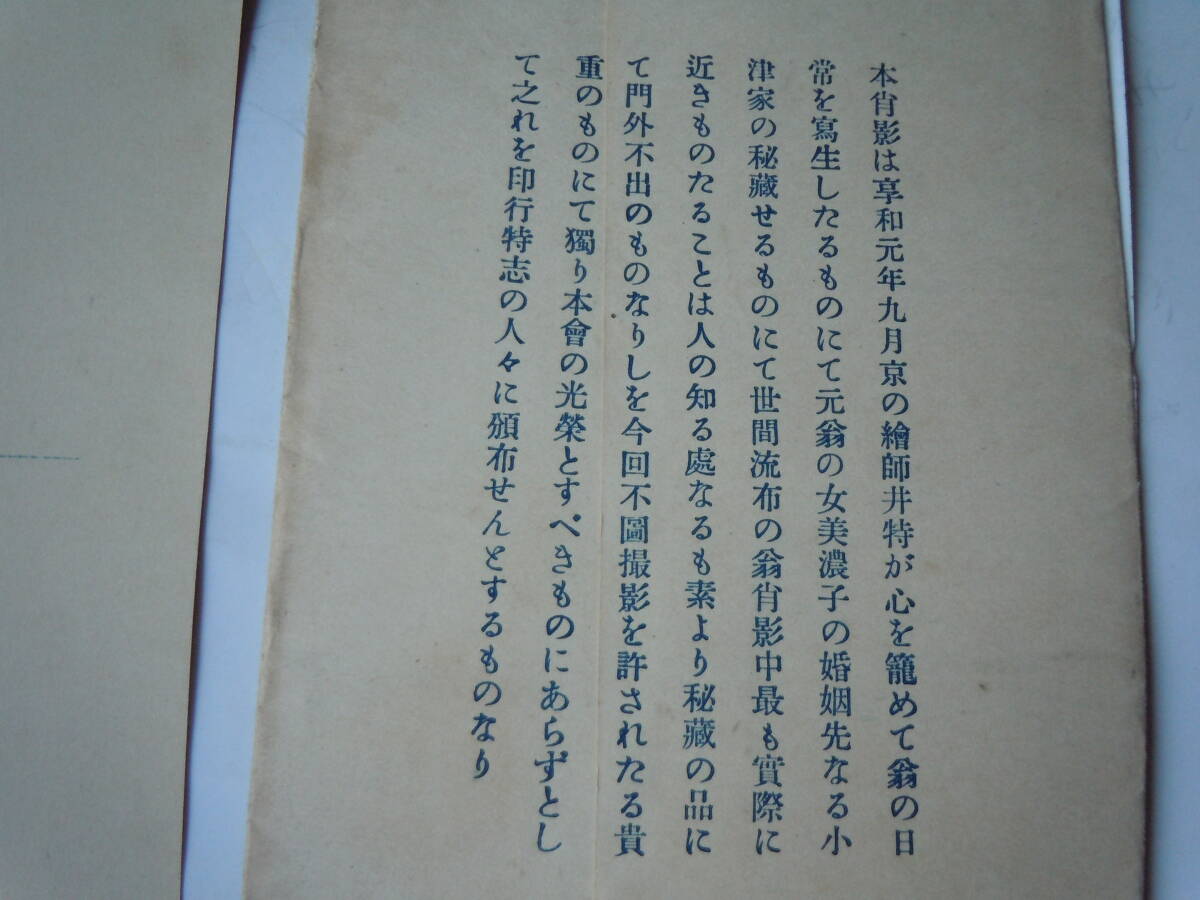 本肖影は享和元年九月京の繪師井特が心を籠めて翁の日
常を寫生したるものにて元翁の女美濃子の婚姻先なる小
津家の秘藏せるものにて世間流布の翁肖影中最も實際に
近きものたることは人の知る處なるも素より秘藏の品に
て門外不出のものなりしを今回不圖撮影を許されたる貴
重のものにて獨り本會の光榮とすべきものにあらずとし
て之れを印行特志の人々に頒布せんとするものなり